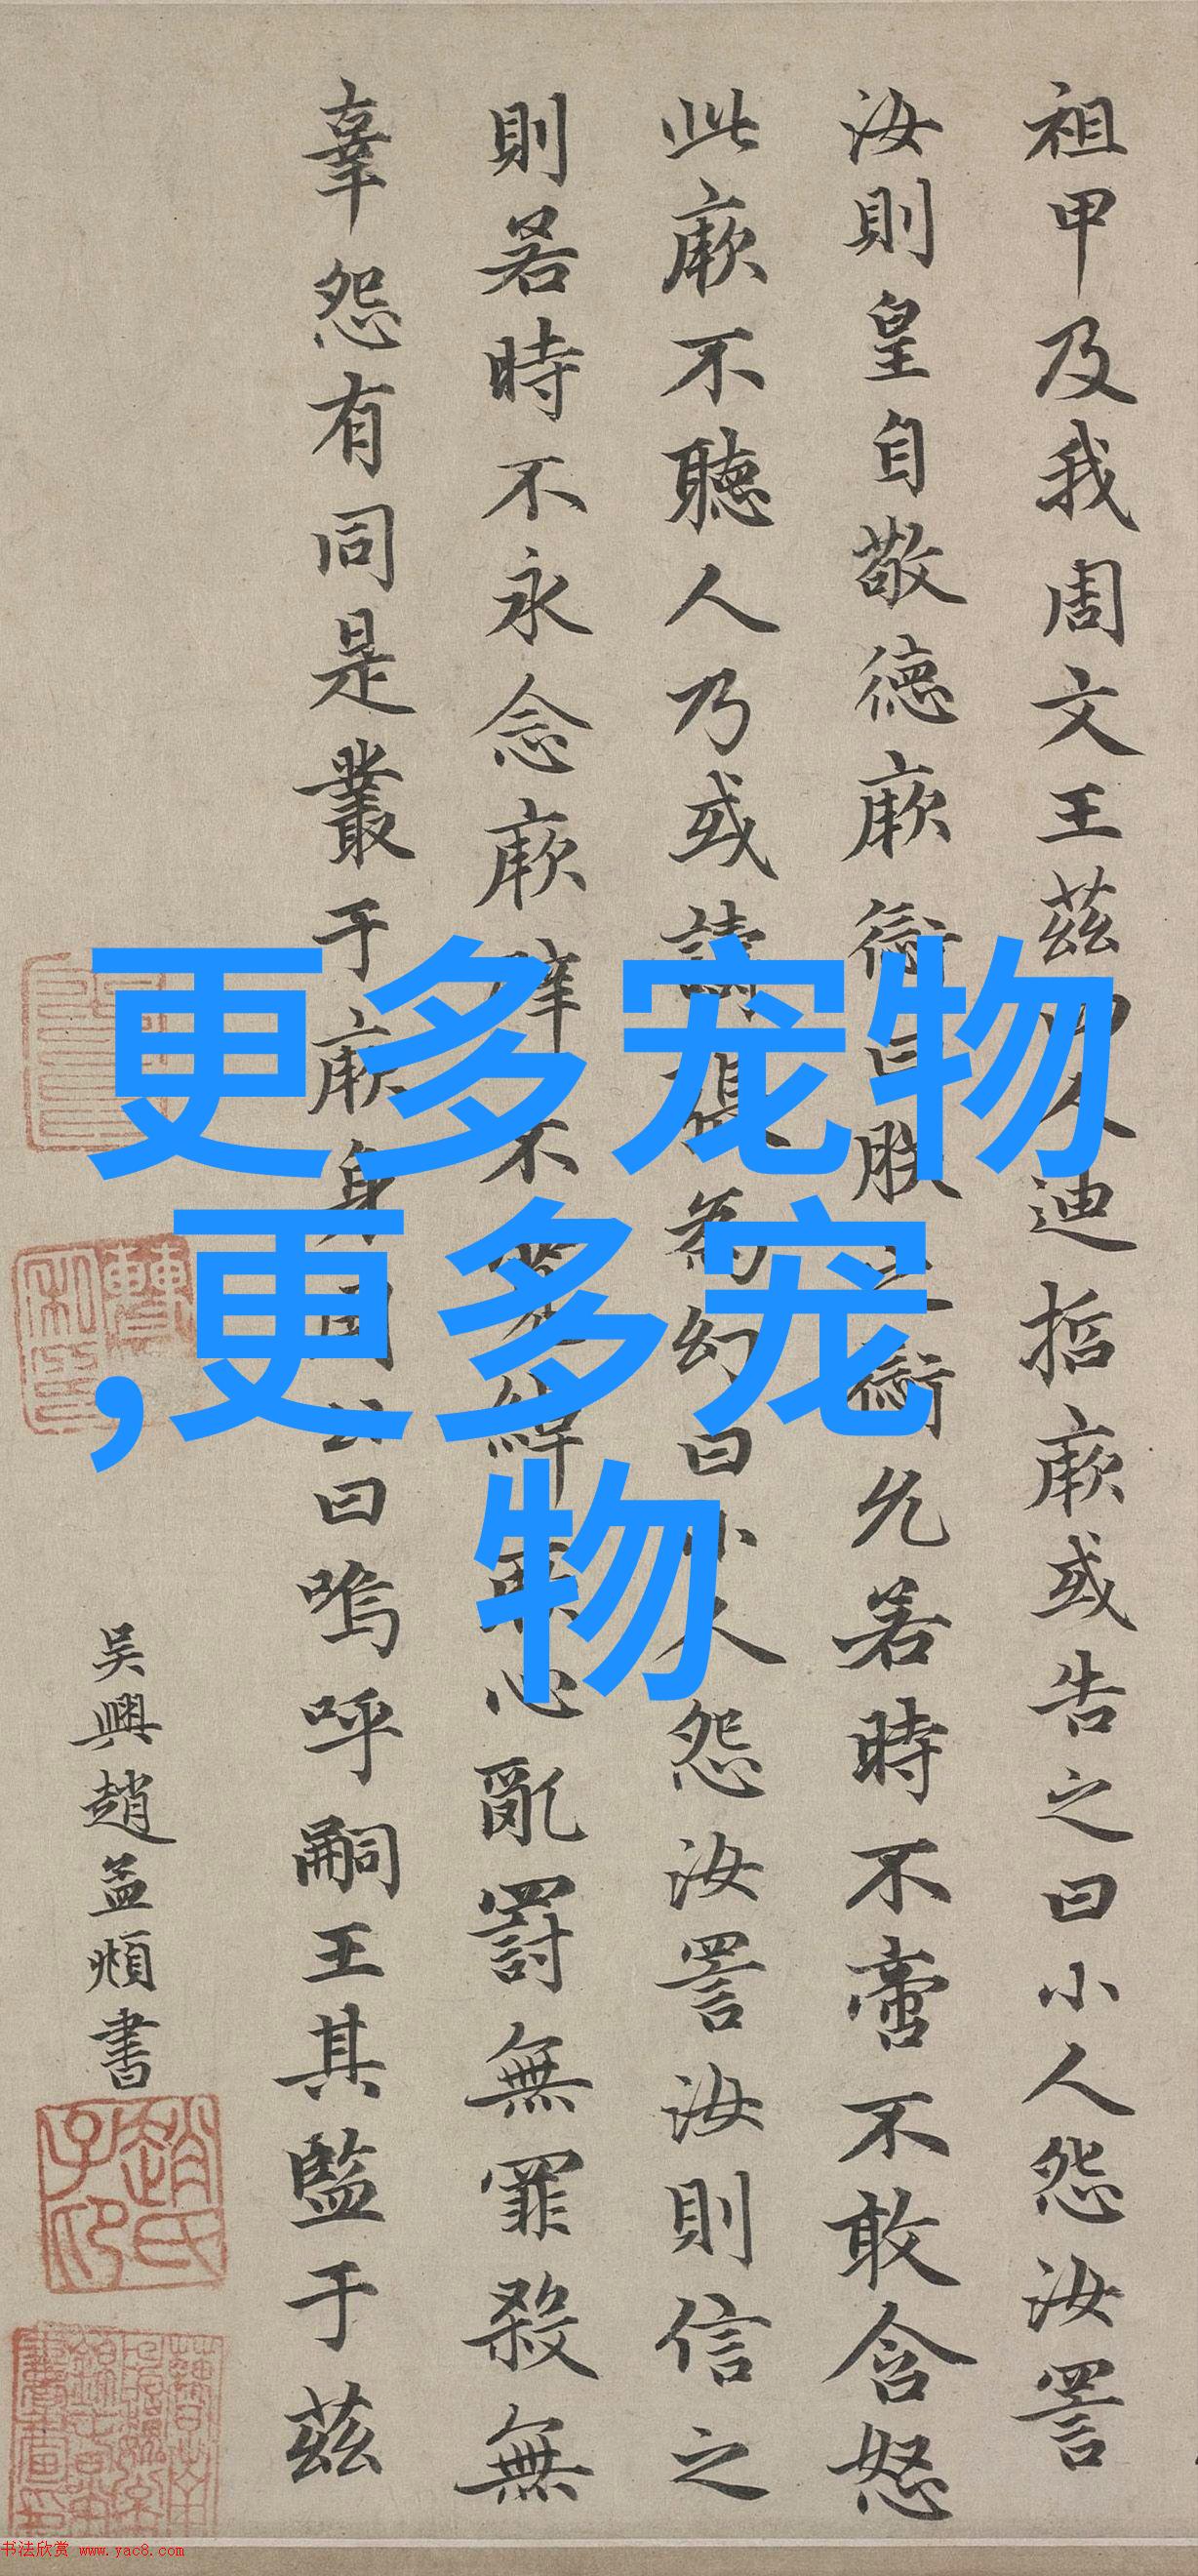 祖甲及我周文王茲四人迪哲厥或告之曰小人怨汝詈
汝則皇自敬德厥愆曰朕之愆允若時不啻不敢含怒
此厥不聽人乃或譸張為幻曰小人怨汝詈汝則信之
則若時不永念厥辟不寬綽厥心亂罰無罪殺無
辜怨有同是叢于厥身周公曰嗚呼嗣王其監于茲
吳興趙孟頫書
趙氏子印
更多宠物
,更多宠
物
书法欣赏 www.yac8.com